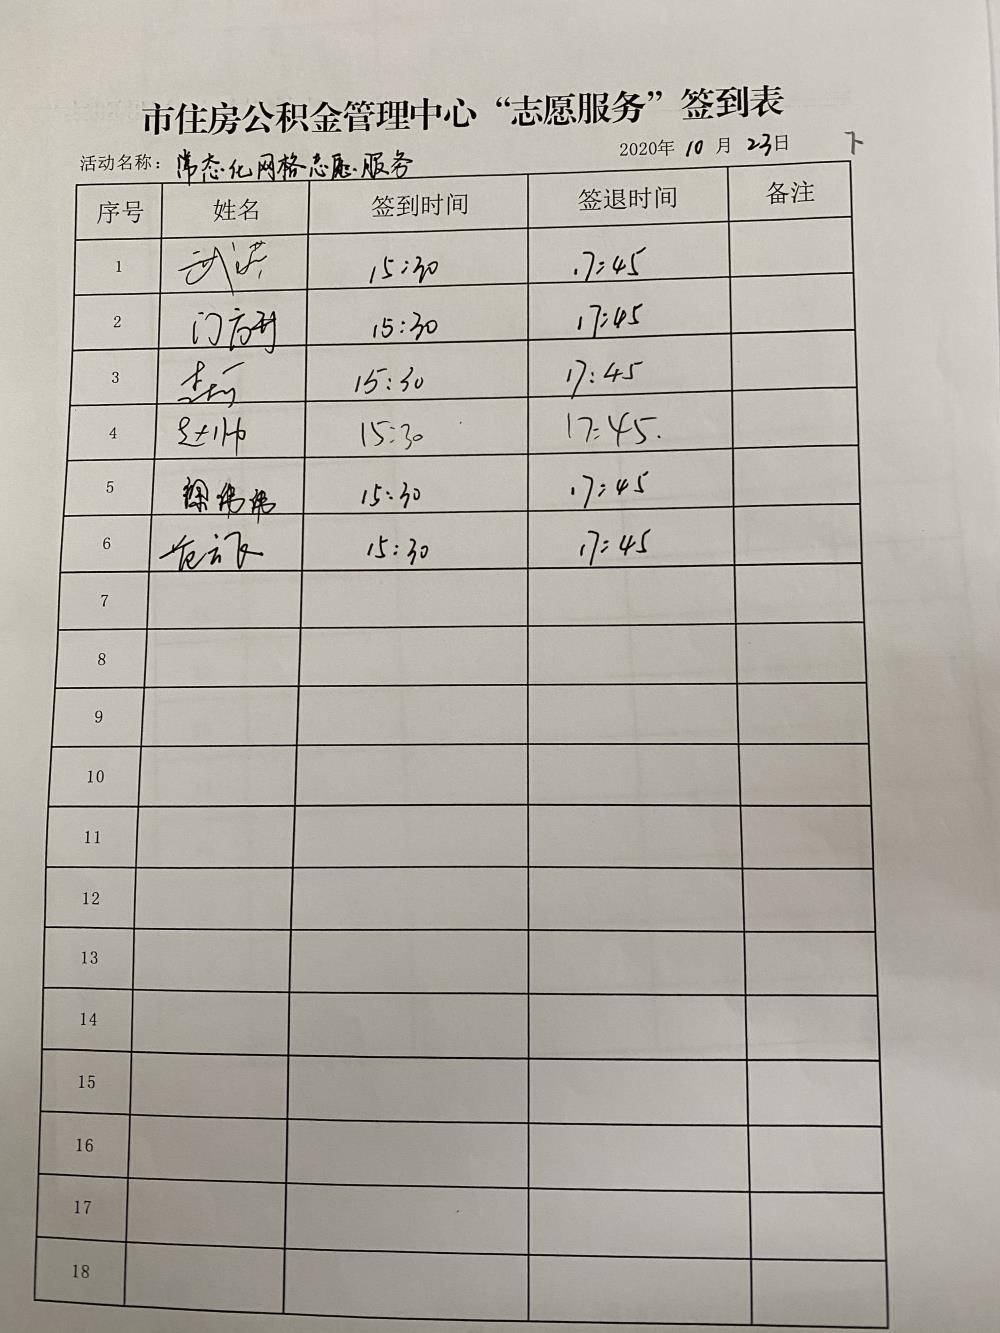 市住房公积金管理中心“志愿服务”签到表
活动名称：常态化网格志愿服务 2020年 10 月 23日 下
序号 姓名 签到时间 签退时间 备注
1 武洪 15:30 17:45
2 15:30 17:45
3 15:30 17:45
4 赵帅 15:30 17:45
5 徐伟伟 15:30 17:45
6 范云飞 15:30 17:45
7
8
9
10
11
12
13
14
15
16
17
18